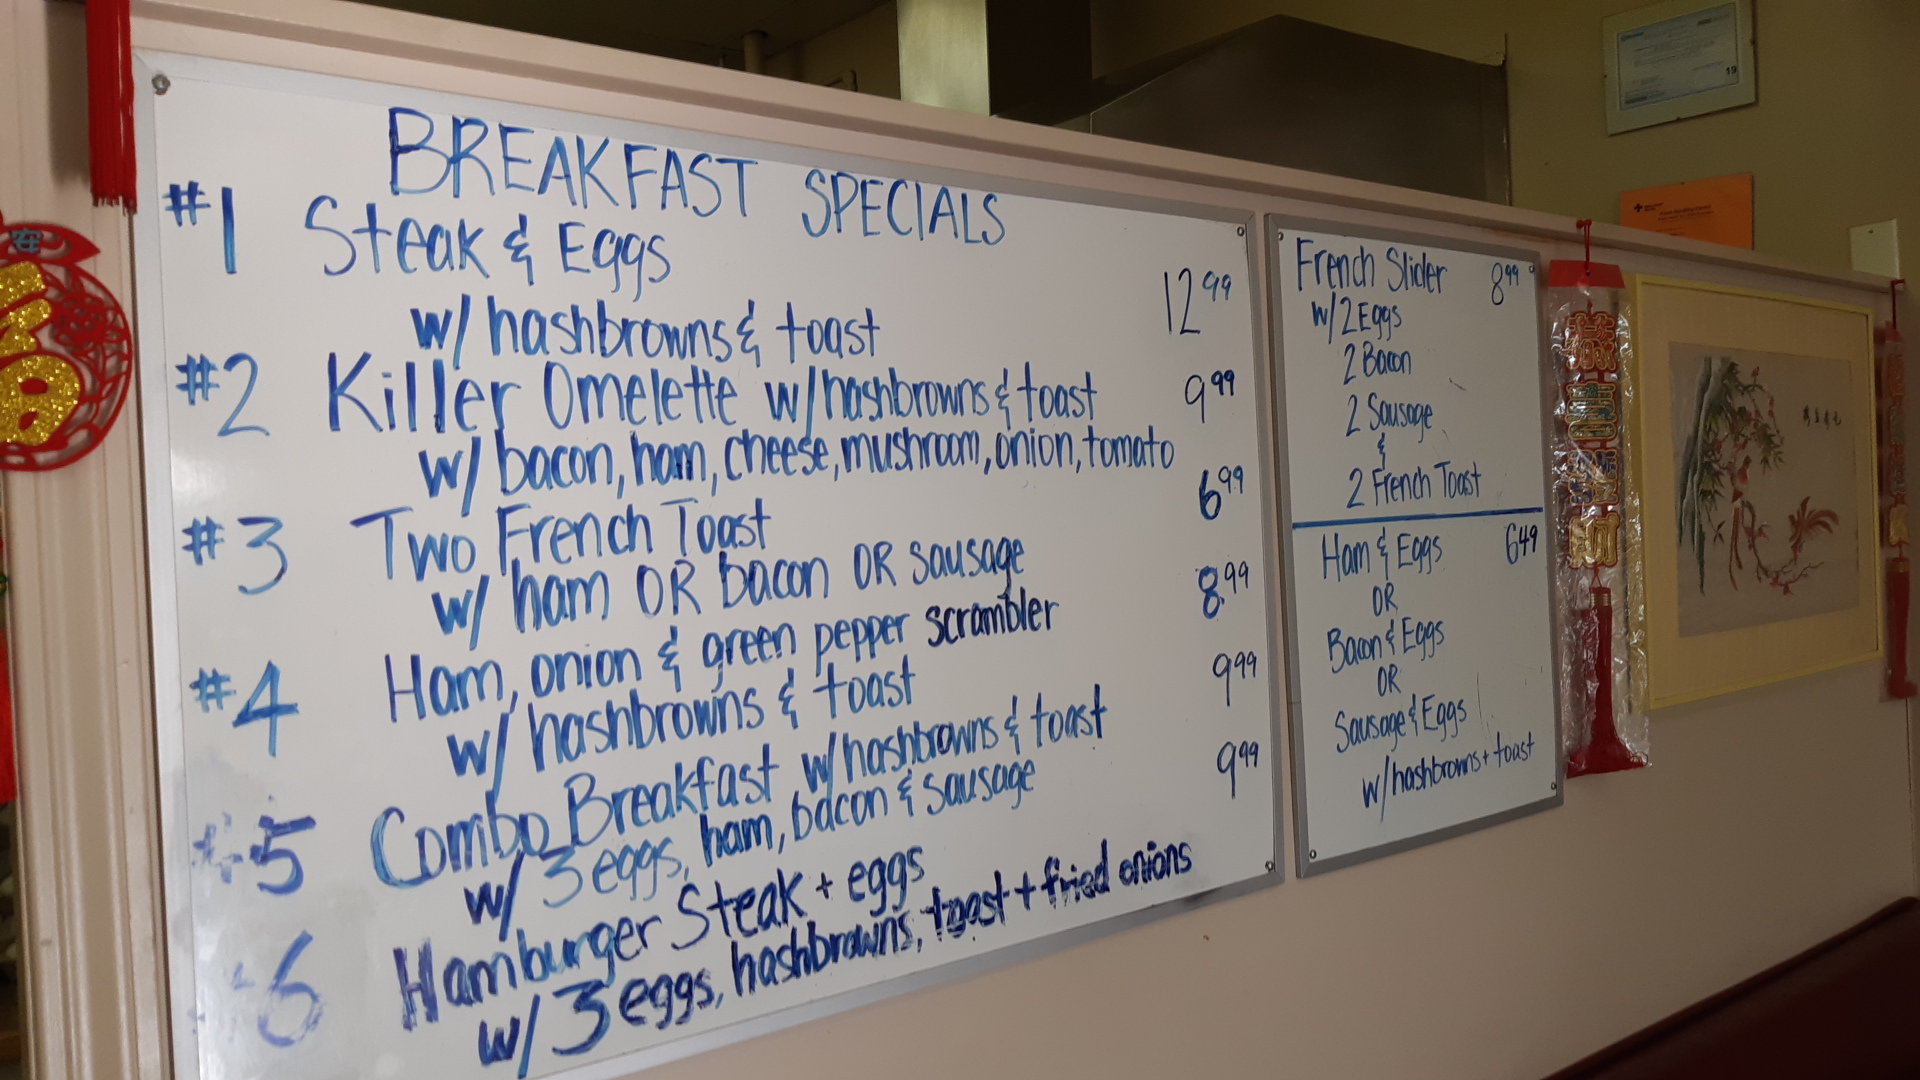 BREAKFAST SPECIALS
#1 Steak & Eggs
w/ hashbrowns & toast 12 99
#2 Killer Omelette w/hashbrowns & toast 9 99
w/ bacon, ham, cheese, mushroom, onion, tomato
#3 Two French Toast 6 99
w/ ham OR bacon OR sausage
#4 Ham, onion & green pepper scrambler 8.99
w/ hashbrowns & toast
#5 Combo Breakfast w/hashbrowns & toast 9 99
w/ 3 eggs, ham, bacon & sausage
#6 Hamburger Steak + eggs 9 99
w/ 3 eggs, hashbrowns, toast + fried onions
French Slider 8 99
w/2 Eggs
2 Bacon
2 Sausage
&
2 French Toast
Ham & Eggs 6 49
OR
Bacon & Eggs
OR
Sausage & Eggs
w/hashbrowns + toast
安
19